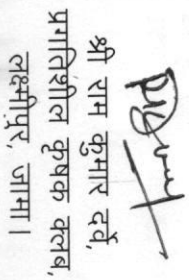 श्री राम कुमार दर्वे,
प्रगतिशील कृषक क्लब,
लक्ष्मीपुर, जामा।